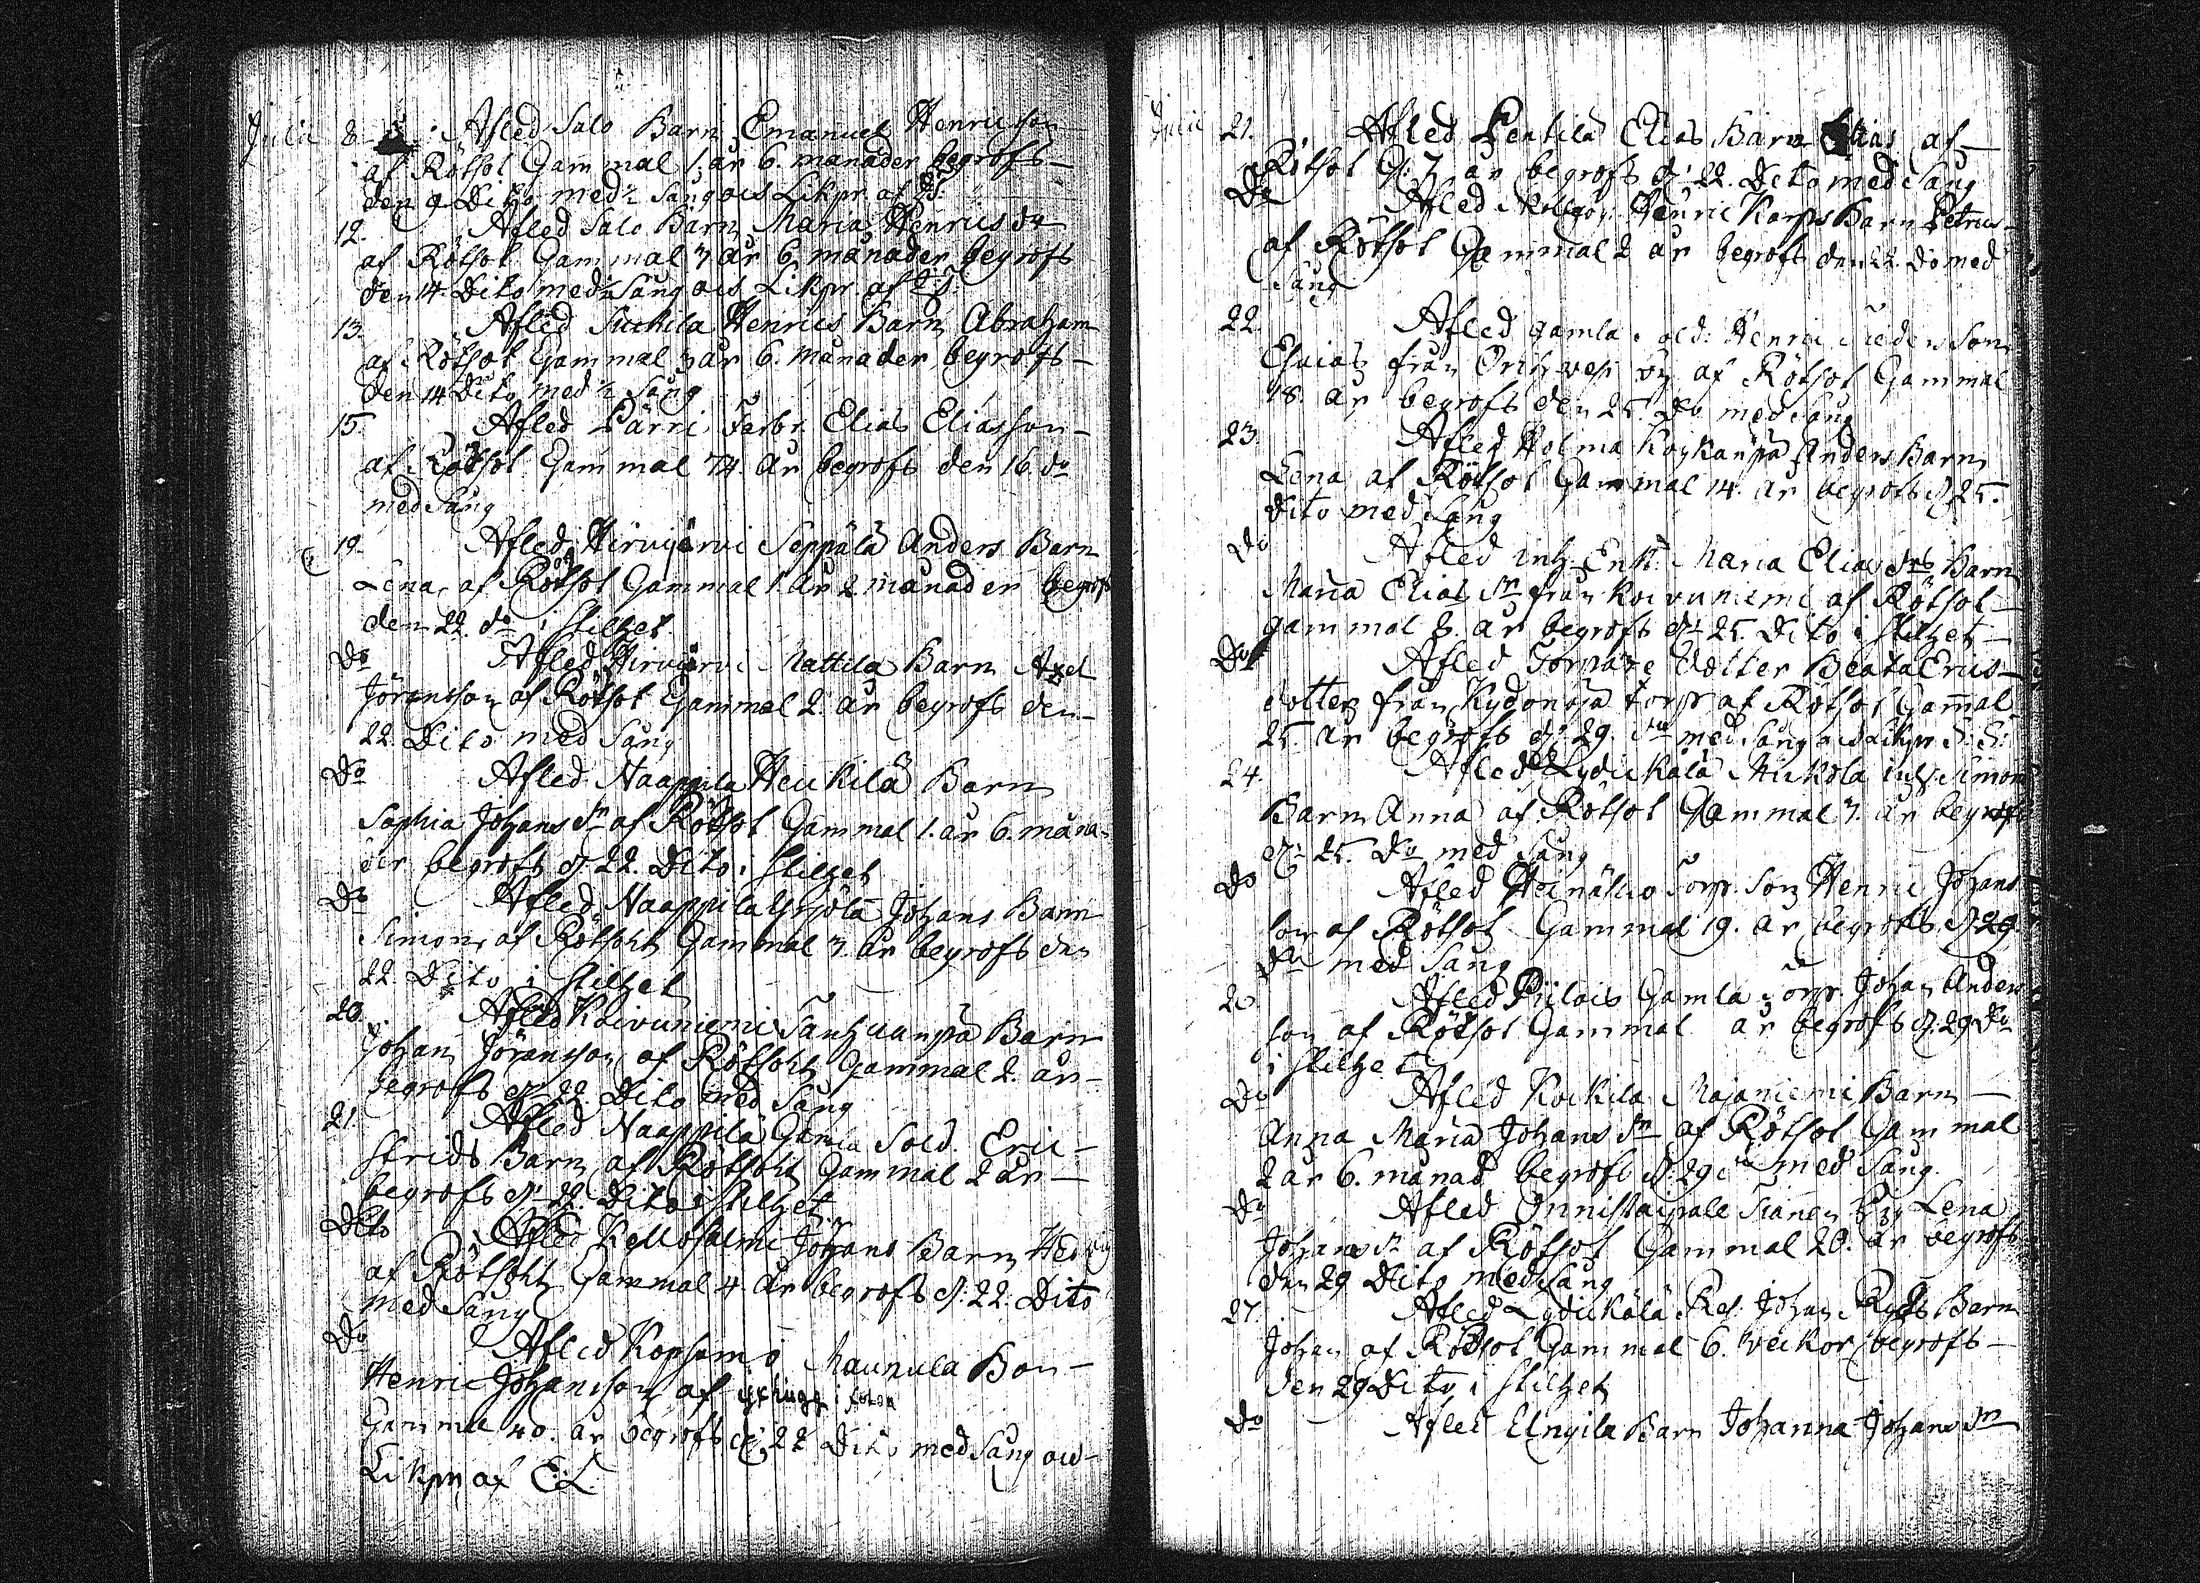 Julii 8. Afled Salo Barn Emanuel Henricsson
af Rötsot Gammal 1 år 6. månader begrofs
den 9 Dito med Sång och Likpr. af
12. Afled Salo Barn Maria Henricsdr
af Rötsot Gammal 7 år 6 månader begrofs
den 14. Dito med Sång och Likpr. af
13. Afled Suckila Henrics Barn Abraham
af Rötsot Gammal 3 år 6. månader begrofs
den 14 Dito med Sång
15. Afled Pärri Eliæ Eliasson
af Rötsot Gammal 74. år begrofs den 16. do
med Sång
19. Afled Hirvijärvi Seppälä Anders Barn
Lena af Rötsot Gammal 1. år 2 månader begrofs
den 22. do i stilhet
Do Afled Hirvijärvi Mattila Barn Axel
Jöransson af Rötsot Gammal 2. år begrofs den
22. Dito med Sång
Do Afled Naappila Heickilä Barn
Sophia Johans dr af Rötsot Gammal 1. år 6. måna-
der begrofs d. 22. Dito i stilhet
Do Afled Naappila Yrjölä Johans Barn
Simon af Rötsoht Gammal 7. år begrofs den
22. Dito i stilhet
20. Afled Koivuniemi Sanhuanpä Barn
Johan Jöransson af Rötsoht Gammal 2. år
begrofs d. 22. Dito med Sång
21. Afled Naappila Gamla Sold. Eric
Strids Barn af Rötsoht Gammal 2 år
begrofs d. 22. Dito i stilhet
Dito Afled Kellosalmi Johans Barn Hedvig
af Rötsoht Gammal 4. år begrofs d. 22. Dito
med Sång
Do Afled Kopsamo Maunula Bon
Henric Johansson af
Gammal 40. år begrofs d. 22 Dito med Sång och
Likpr. af E. L.
Julii 21. Afled Pentilä Elias Barn Elias af
Rötsot G. 7. år begrofs d. 22. Dito med Sång
Do Afled Henric Karps Barn Petrus
af Rötsot Gammal 2 år begrofs den 22. do med
Sång
22. Afled gamla sold. Henric Son
Esaias från Orihvesi af Rötsot Gammal
18. år begrofs den 25. Do med Sång
23. Afled Holma Koskanpä Anders Barn
Lena af Rötsot Gammal 14. år begrofs d. 25.
Dito med Sång
Do Afled Inh. Enk. Maria Elias drs Barn
Maria Elias dr från Koivuniemi af Rötsot
gammal 8. år begrofs d. 25. Dito i stilhet
Do Afled Torpare dotter Beata Erics
dotter från torp af Rötsot Gammal
25. år begrofs d. 29. do med Sång
24. Afled Lydickälä Mickola inh. Simons
Barn Anna af Rötsot Gammal 7. år begrofs
d. 25. Do med Sång
Do Afled Torp. Son Henric Johans
son af Rötsot Gammal 19. år begrofs d. 29
do med Sång
Afled Piilois Gamla Torp. Johan Anders
son af Rötsot Gammal år begrofs d. 29 Do
i stilhet
Do Afled Kockila Majaniemi Barn
Anna Maria Johans dr af Rötsot Gammal
2 år 6. månad begrofs d. 29 do med Sång
Do Afled Onnistaipale Lena
Johans dr af Rötsot Gammal 20. år begrofs
den 29 Dito med Sång
27. Afled Lydickälä Johan Barn
Johan af Rötsot Gammal 6. veckor begrofs
den 29 Dito i stilhet
Do Afled Elngila Barn Johanna Johans dr